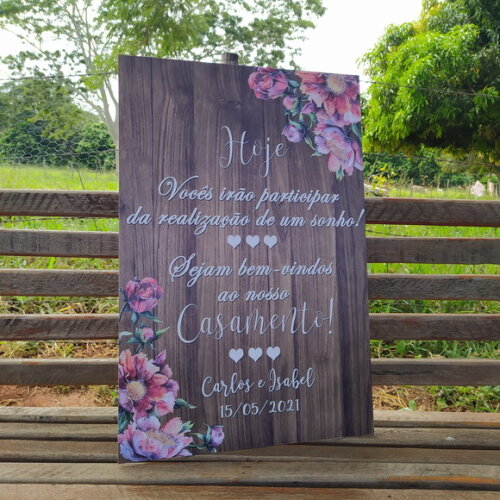 Hoje
Vocês irão participar
da realização de um sonho!
Sejam bem-vindos
ao nosso
Casamento!
Carlos e Isabel
15/05/2021